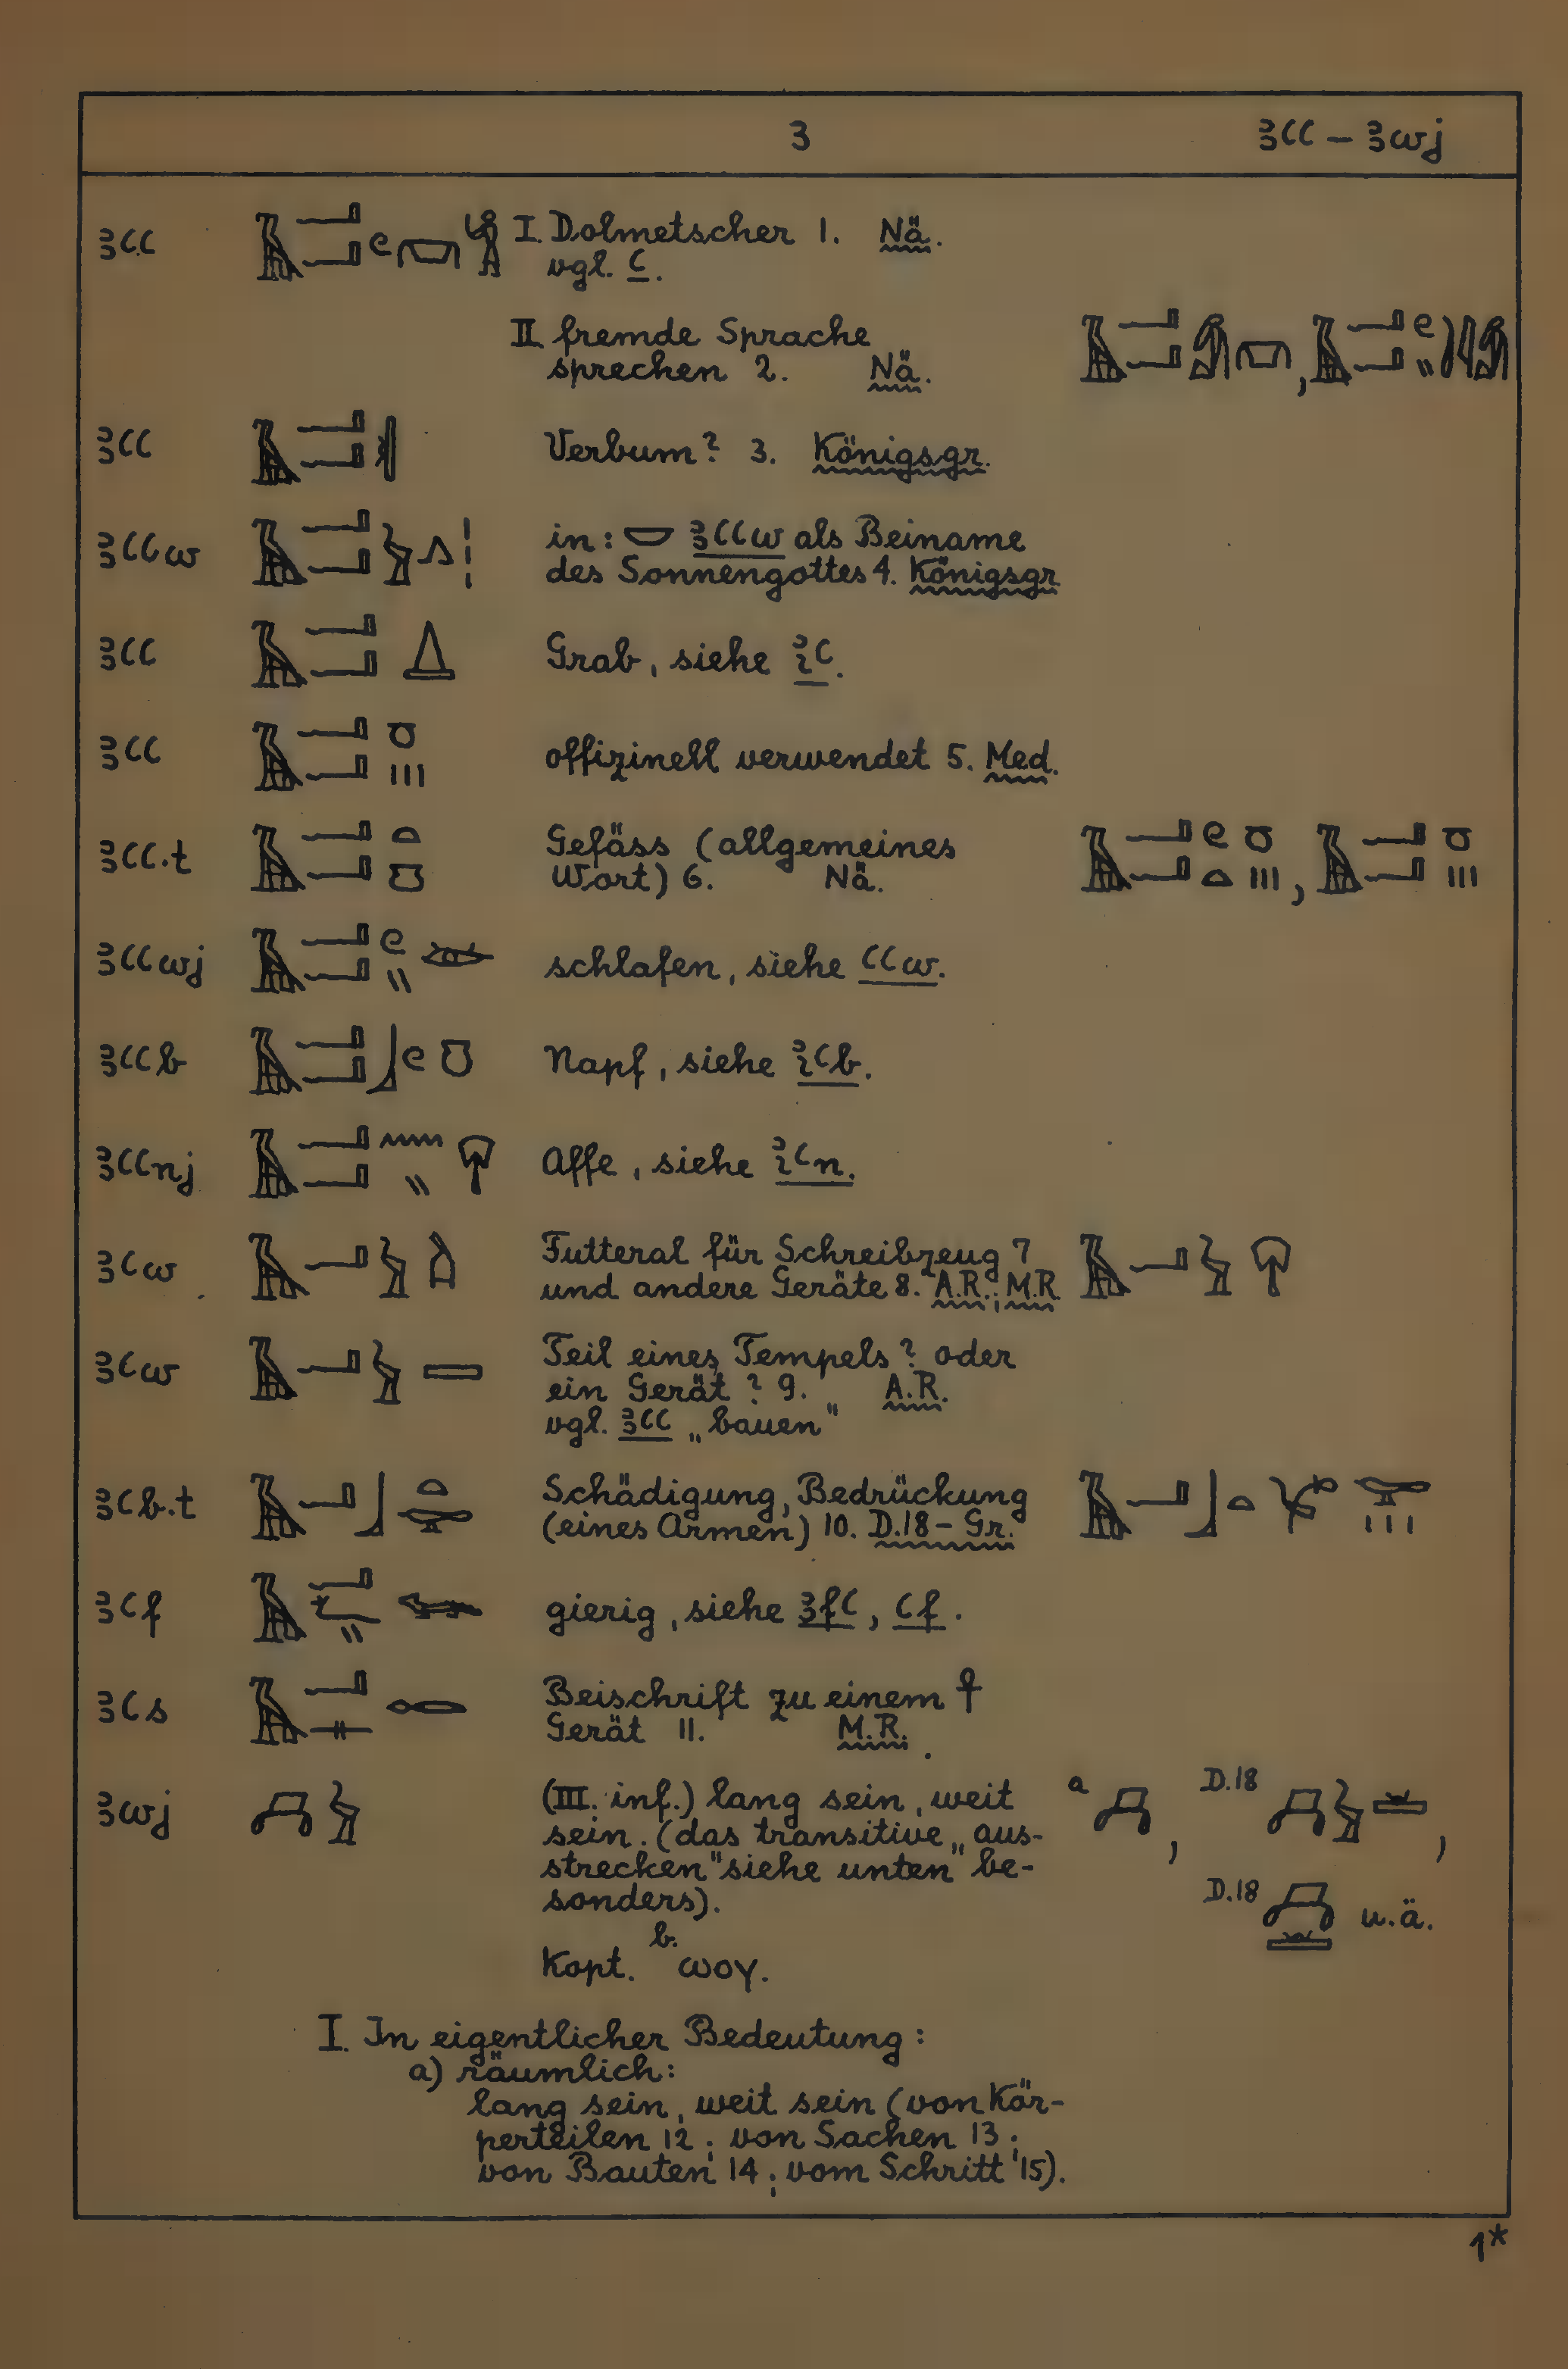 3 ꜣꜥꜥ – ꜣwj
ꜣꜥꜥ I. Dolmetscher 1. Nä.
vgl. ꜥ.
II fremde Sprache
sprechen 2. Nä.
ꜣꜥꜥ Verbum? 3. Königsgr.
ꜣꜥꜥw in: ꜣꜥꜥw als Beiname
des Sonnengottes 4. Königsgr
ꜣꜥꜥ Grab, siehe iꜣꜥ.
ꜣꜥꜥ offizinell verwendet 5. Med.
ꜣꜥꜥ.t Gefäss (allgemeines
Wort) 6. Nä.
ꜣꜥꜥwj schlafen, siehe ꜥꜥw.
ꜣꜥꜥb Napf, siehe iꜣꜥb.
ꜣꜥꜥnj Affe, siehe iꜣꜥn.
ꜣꜥw Futteral für Schreibzeug 7
und andere Geräte 8. A.R.; M.R.
ꜣꜥw Teil eines Tempels? oder
ein Gerät? 9. A.R.
vgl. ꜣꜥꜥ „bauen"
ꜣꜥb.t Schädigung, Bedrückung
(eines Armen) 10. D.18 – Gr.
ꜣꜥf gierig, siehe ꜣfꜥ, ꜥf.
ꜣꜥs Beischrift zu einem
Gerät 11. M.R.
ꜣwj (III. inf.) lang sein, weit a , D.18 ,
sein. (das transitive „aus-
strecken" siehe unten be-
sonders). D.18 u.ä.
Kopt. b. ⲱⲟⲩ.
I. In eigentlicher Bedeutung:
a) räumlich:
lang sein, weit sein (von Kör-
perteilen 12; von Sachen 13;
von Bauten 14; vom Schritt 15).
1*